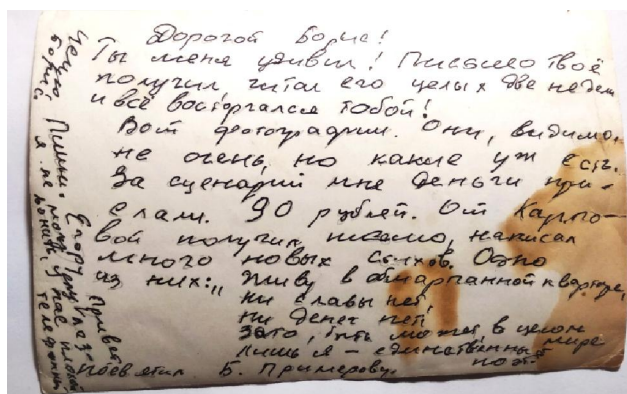 Дорогой Борис!
Ты меня удивил! Письмо твоё
получил, читал его целых две недели
и всё восторгался тобой!
Вот фотографии. Они, видимо,
не очень, но какие уж есть.
За сценарий мне деньги при-
слали. 90 рублей. От Карпо-
вой получил письмо, написал
много новых стихов. Одно
из них: „Живу в обшарпанной квартире,
ни славы нет,
ни денег нет,
зато, быть может, в целом
мире
лишь я – единственный
поэт.
Посвятил Б. Примерову.
Жму Пиши. Егору привет
Борис, я не могу
понять, у нас плохой
телефонный